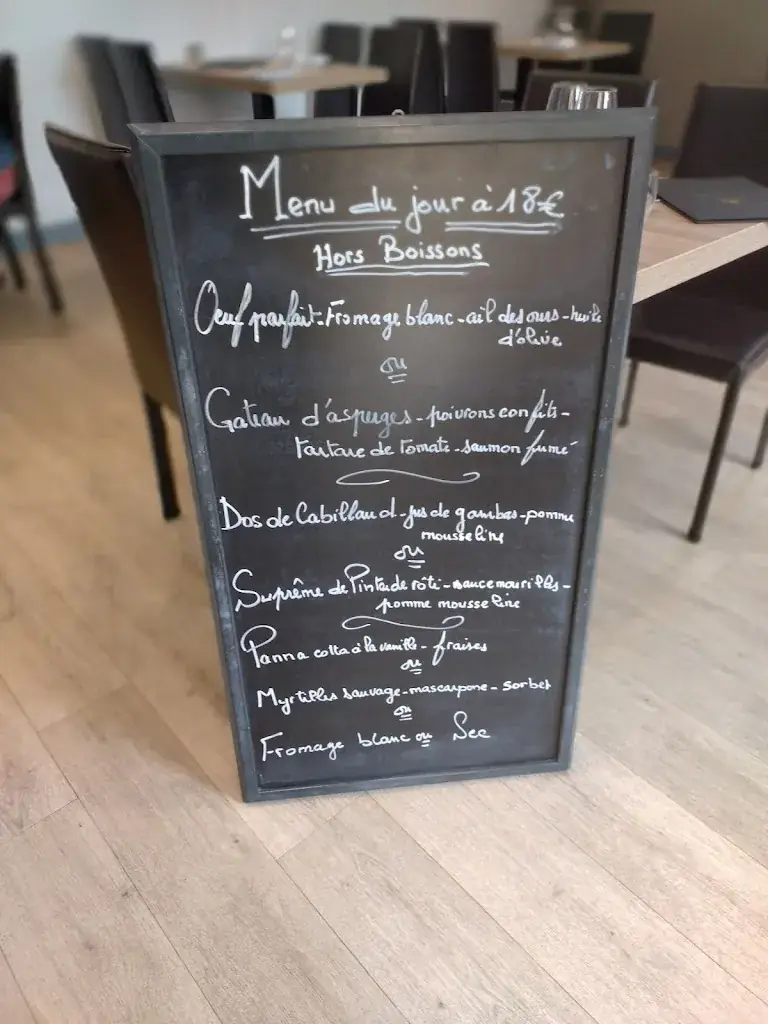 Menu du jour à 18€
Hors Boissons
Oeuf parfait - Fromage blanc - ail des ours - huile
d'olive
ou
Gateau d'asperges - poivrons confits -
tartare de tomate - saumon fumé
Dos de Cabillaud - jus de gambas - pomme
mousseline
ou
Suprême de Pintade rôti - sauce morilles -
pomme mousseline
Panna cotta à la vanille - fraises
ou
Myrtilles sauvage - mascarpone - sorbet
ou
Fromage blanc ou Sec